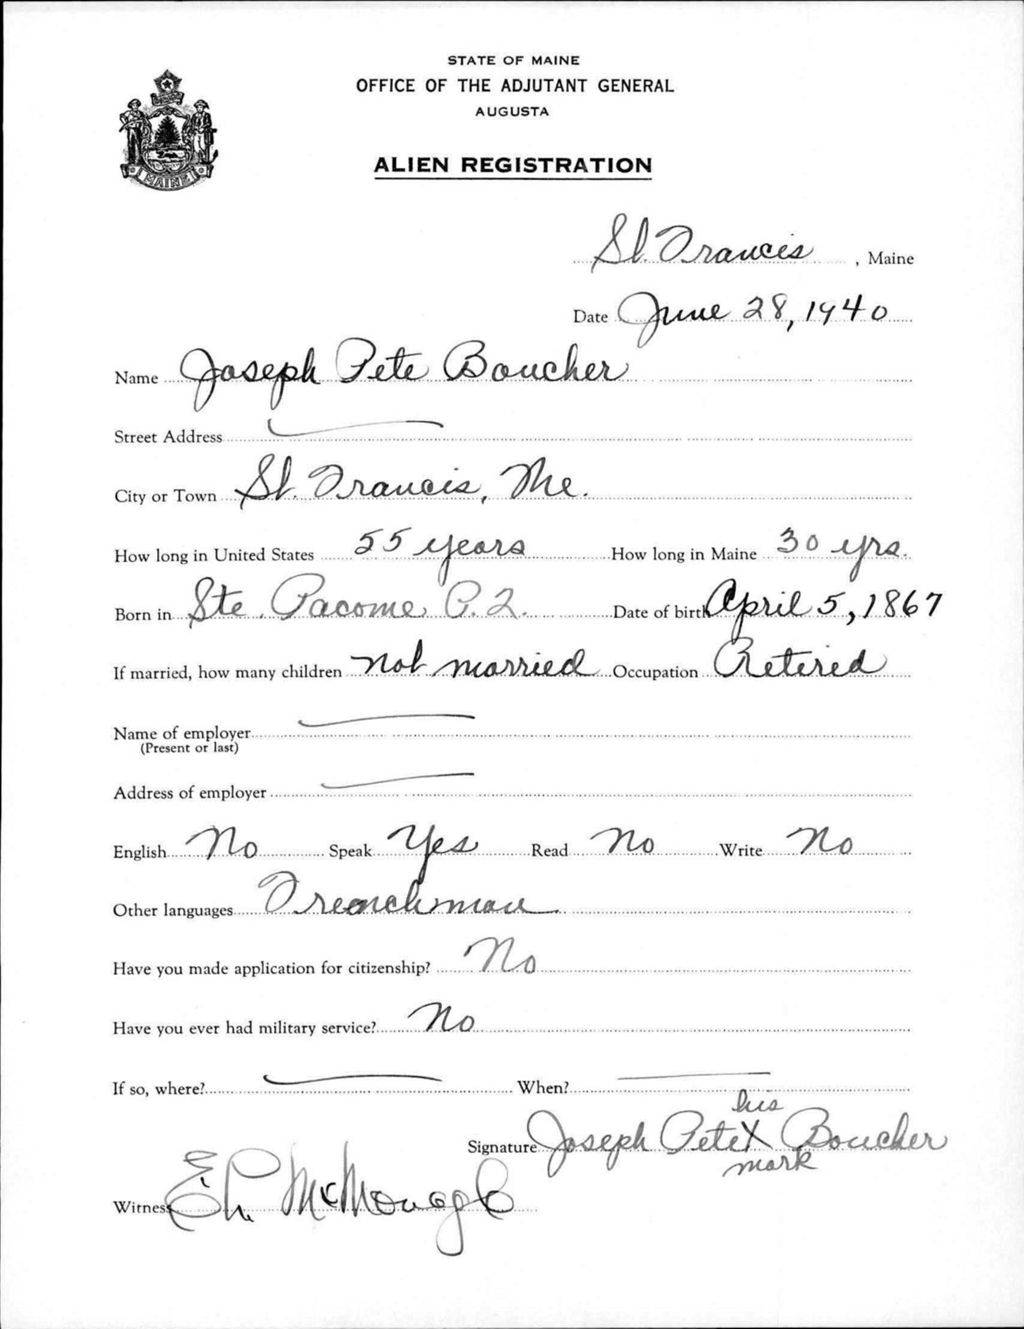 STATE OF MAINE
OFFICE OF THE ADJUTANT GENERAL
AUGUSTA
ALIEN REGISTRATION
MAINE
St. Francis, Maine
Date June 28, 1940
Name Joseph Pete Boucher
Street Address
City or Town St. Francis, Me.
How long in United States 55 years How long in Maine 30 yrs.
Born in Ste. Pacome, P.Q. Date of birth April 5, 1867
If married, how many children not married Occupation Retired
Name of employer
(Present or last)
Address of employer
English No Speak Yes Read No Write No
Other languages Frenchman
Have you made application for citizenship? No
Have you ever had military service? No
If so, where? When?
his
Signature Joseph Pete X Boucher
mark
Witness McMonagle